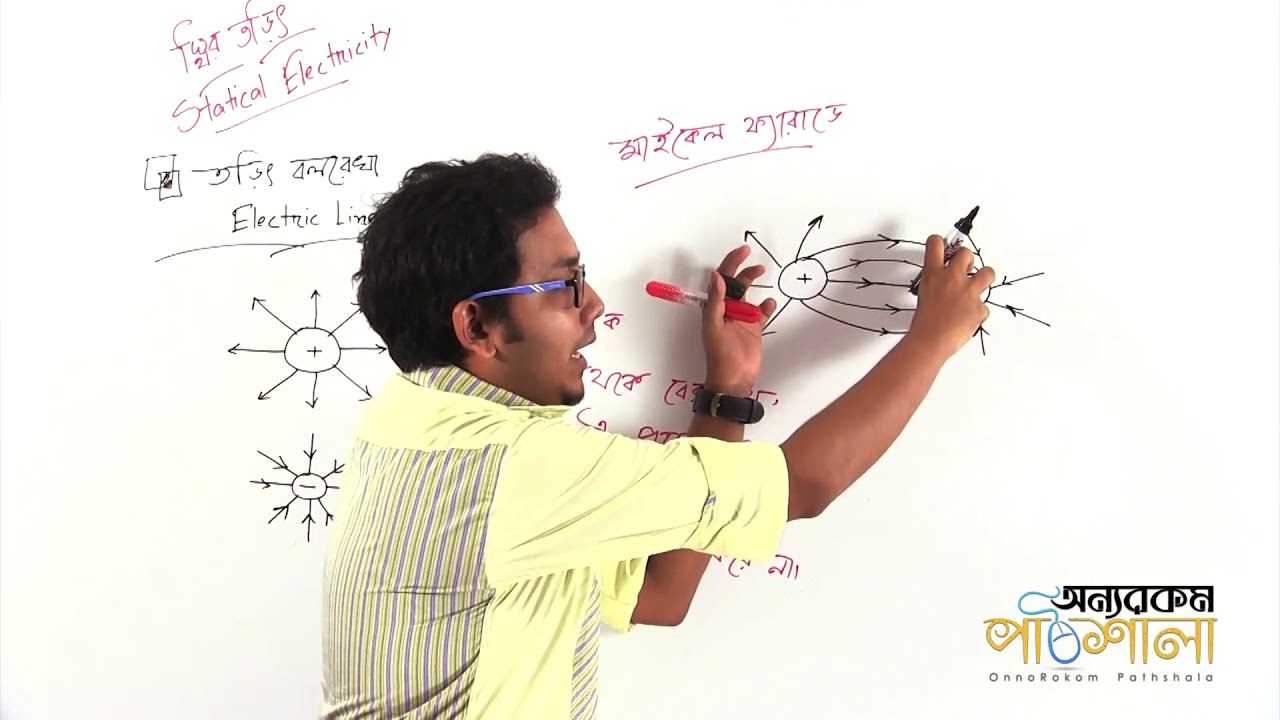 স্থির তড়িৎ
Statical Electricity
মাইকেল ফ্যারাডে
তড়িৎ বলরেখা
Electric Line
+
+
ক
থেকে
−
না।
অন্যরকম
পাঠশালা
OnnoRokom Pathshala